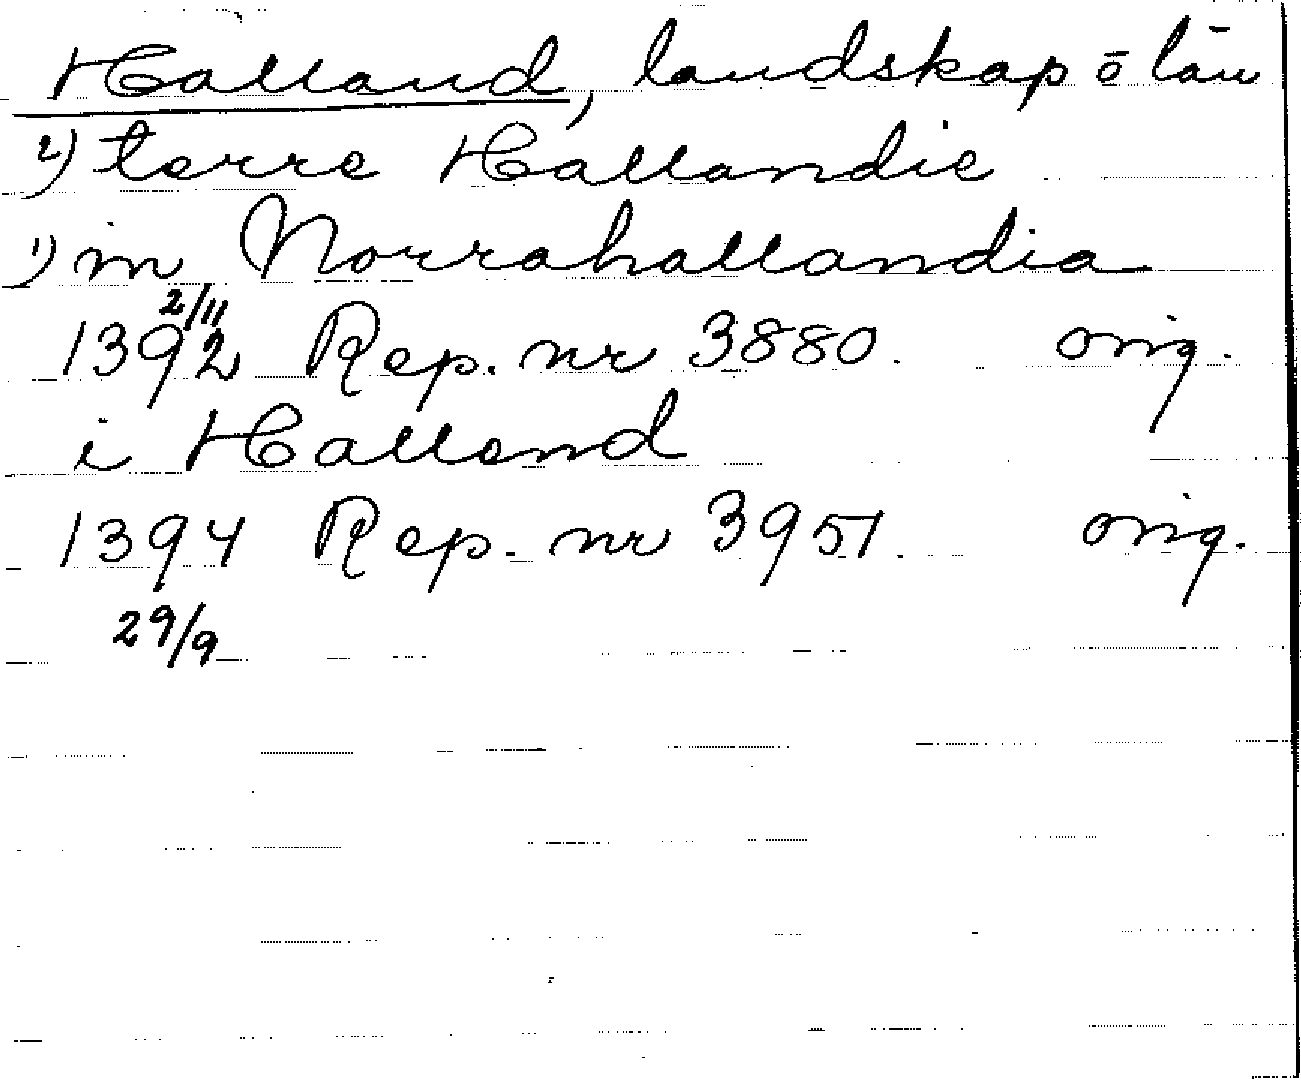 Halland, landskap o län
2) terre Hallandie
1) in Norrahallandia
2/11
1392 Rep. nr 3880. orig.
i Halland
1394 Rep. nr 3951. orig.
29/9